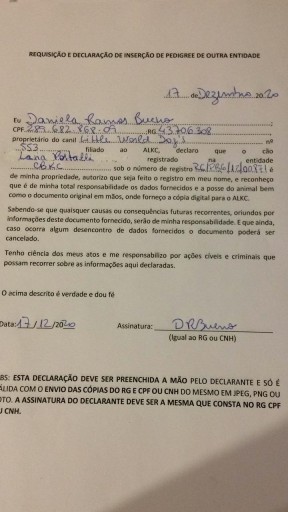 REQUISIÇÃO E DECLARAÇÃO DE INSERÇÃO DE PEDIGREE DE OUTRA ENTIDADE
17 de Dezembro 2020
Eu Daniela Ramos Bueno
CPF 289.682.868-09 RG 43706308
proprietário do canil Little World Dog's nº
553 filiado ao ALKC, declaro que o cão
Lana Portalli registrado na entidade
CBKC sob o número de registro
de minha propriedade, autorizo que seja feito o registro em meu nome, e reconheço
que é de minha total responsabilidade os dados fornecidos e a posse do animal bem
como o documento original em mãos, onde forneço a cópia digital para o ALKC.
Sabendo-se que quaisquer causas ou consequências futuras recorrentes, oriundos por
informações deste documento fornecido, serão de minha responsabilidade. E que ainda,
caso ocorra algum desencontro de dados fornecidos o documento poderá ser
cancelado.
Tenho ciência dos meus atos e me responsabilizo por ações cíveis e criminais que
possam recorrer sobre as informações aqui declaradas.
O acima descrito é verdade e dou fé
Data: 17/12/2020 Assinatura: DRBueno
(Igual ao RG ou CNH)
BS: ESTA DECLARAÇÃO DEVE SER PREENCHIDA A MÃO PELO DECLARANTE E SÓ É
ÁLIDA COM O ENVIO DAS CÓPIAS DO RG E CPF OU CNH DO MESMO EM JPEG, PNG OU
OTO. A ASSINATURA DO DECLARANTE DEVE SER A MESMA QUE CONSTA NO RG CPF
U CNH.